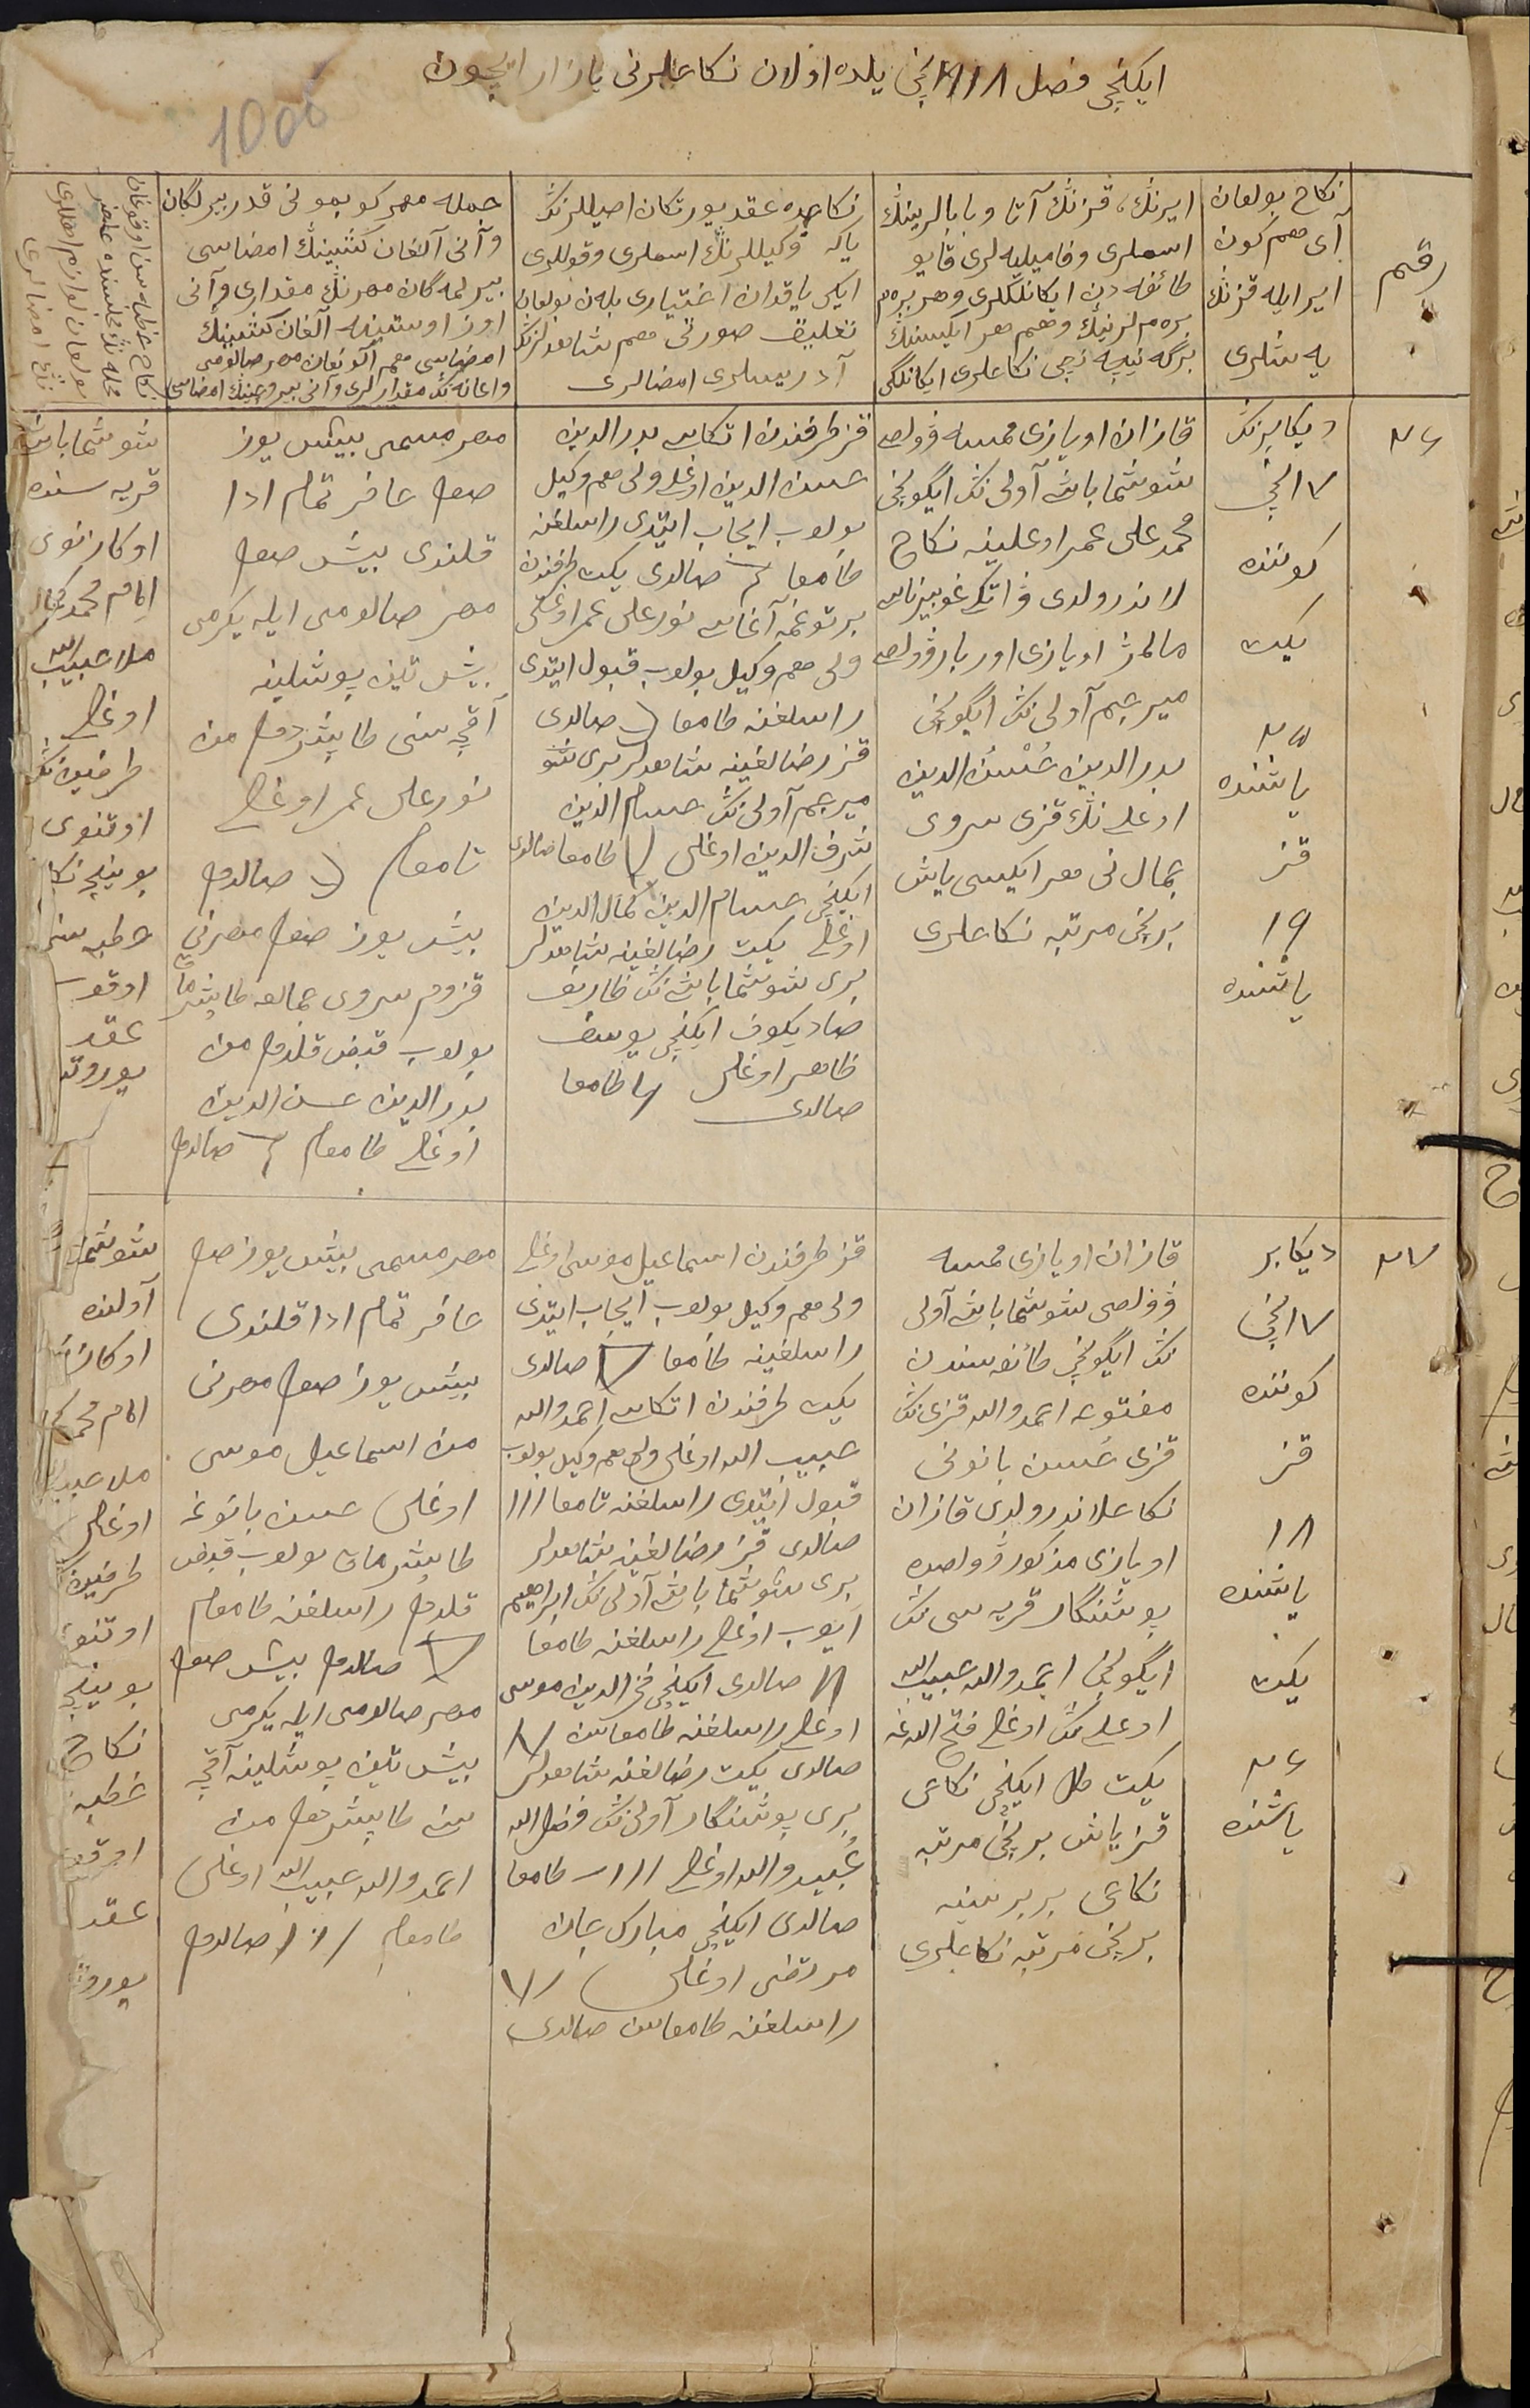 ایکنچی فصل ۱۹۱۸نچی یلده اولان نکاحلرنی یازار ایچون
1000
رقم
نکاح بولغان
آی هم کون
ایر ایله قزنڭ
یه شلری
ایرنڭ، قزنڭ آتا وبابالرینڭ
اسملری وفامیلیه لری قایو
طائفه دن ایکانلکلری وهر بره
بره مرلرنیڭ وهم هر ایکیسنڭ
برگه نیچه نچی نکاحلری ایکانلگی
نکاحده عقد یورتکان اصیللرنڭ
یاکه وکیللرنڭ اسملری وقوللری
ایکی یاقدان اختیاری بلەن بولغان
تعلیق صورتی هم شاهدلرنڭ
آدریسلری امضالری
جمله مهر کوبمونی قدر بیرلگان
وآنی آلغان کشینڭ امضاسی
بیرلمه گان مهرنڭ مقداری وآنی
اوز اوستینه آلغان کشینڭ
امضاسی هم آلونغان مهر صالومی
واعانه نڭ مقدارلری وآنی بیروچینڭ امضاسی
۲۶
دیکابرنڭ
۱۷نچی
کوننده
یکت
۲۵
یاشنده
قز
۱۹
یاشنده
قازان اویازی ممسه ڤولصی
شوشما باش آولی نڭ ایگونچی
محمدعلی عمر اوغلینه نکاح
مالمژ اویازی اوربار ڤولصی
میرجم آولی نڭ ایگونچی
بدرالدین حُسْن الدین
اوغلی نڭ قزی سروی
جمال نی هر ایکیسی یاش
برنچی مرتبه نکاحلری
قز طرفندن اتکاسی بدرالدین
حسن الدین اوغلی ولی هم وکیل
بولوب ایجاب ایتدی راسلغنه
طامغا صالدی یکت طرفندن
برتوغمه آغاسی نورعلی عمر اوغلی
ولی هم وکیل بولوب قبول ایتدی
راسلغنه طامغا صالدی
قز رضالغینه شاهدلر بری شو
میرجم آولی نڭ حسام الدین
شرف الدین اوغلی طامغا صالدی
ایکنچی حسام الدین کمال الدین
اوغلی یکت رضالغینه شاهدلر
بری شوشما باش نڭ ظاریف
صادیکوف ایکنچی یوسف
ظاهر اوغلی طامغا
صالدی
مهر مسمی بیش یوز
صوم حاضر تمام ادا
قلندی بیش صوم
مهر صالومی ایله یکرمی
بیش تین پوشلینه
آقچه سنی طاپشردم من
نورعلی عمر اوغلی
تامغام صالدم
بیش یوز صوم مهرنی
قزوم سروی جمالغه طاپشرماق
بولوب قبض قلدم من
بدرالدین حسن الدین
اوغلی طامغام صالدم
شوشما باش
قریه سنده
اوکازنوی
امام محمد کمال
ملا حبیب الله
اوغلی
طرفین نڭ
اوتنوی
بوینچه نکاح
خطبه سنی
اوقوب
عقد
یوروتدم
۲۷
دیکابر
۱۷نچی
کوننده
قز
۱۸
یاشنده
یکت
۲۶
یاشنده
قازان اویازی ممسه
ڤولصی شوشما باش آولی
نڭ ایگونچی طائفه سندن
مفتوحه احمدوالله قزی نڭ
قزی حُسن بانونی
نکاحلاندرولدی قازان
اویازی مذکور ڤولصده
پوشنگار قریه سی نڭ
ایگونچی احمدوالله حبیب الله
اوغلی نڭ اوغلی فتح الله غه
یکت طل ایکنچی نکاحی
قز یاش برنچی مرتبه
نکاحی بر برسینه
برنچی مرتبه نکاحلری
قز طرفندن اسماعیل موسی اوغلی
ولی هم وکیل بولوب ایجاب ایتدی
راسلغینه طامغا صالدی
یکت طرفندن اتکاسی احمدوالله
حبیب الله اوغلی ولی هم وکیل بولوب
قبول ایتدی راسلغنه تامغا ۱۱۱
صالدی قز رضالغینه شاهدلر
بری شوشما باش آولی نڭ ابراهیم
ایوب اوغلی راسلغنه طامغا
صالدی ایکنچی فخرالدین موسی
اوغلی راسلغنه طامغاسن
صالدی یکت رضالغنه شاهدلر
بری پوشنگار آولی نڭ فضل الله
عُبیدوالله اوغلی ۱۱۱ طامغا
صالدی ایکنچی مبارک جان
مرتضی اوغلی
راسلغنه طامغاسن صالدی
مهر مسمی بیش یوز صوم
حاضر تمام ادا قلندی
بیش یوز صوم مهرنی
من اسماعیل موسی
اوغلی حسن بانوغه
طاپشرماق بولوب قبض
قلدم راسلغنه طامغام
صالدم بیش صوم
مهر صالومی ایله یکرمی
بیش تین پوشلینه آقچه
سنه طاپشردم من
احمدوالله حبیب الله اوغلی
طامغام صالدم
شوشما
آولنده
اوکازنوی
امام محمد کمال
ملا حبیب
اوغلی
طرفین
اوتنوی
بوینچه
نکاح
خطبه
اوقوب
عقد
یوروتدم